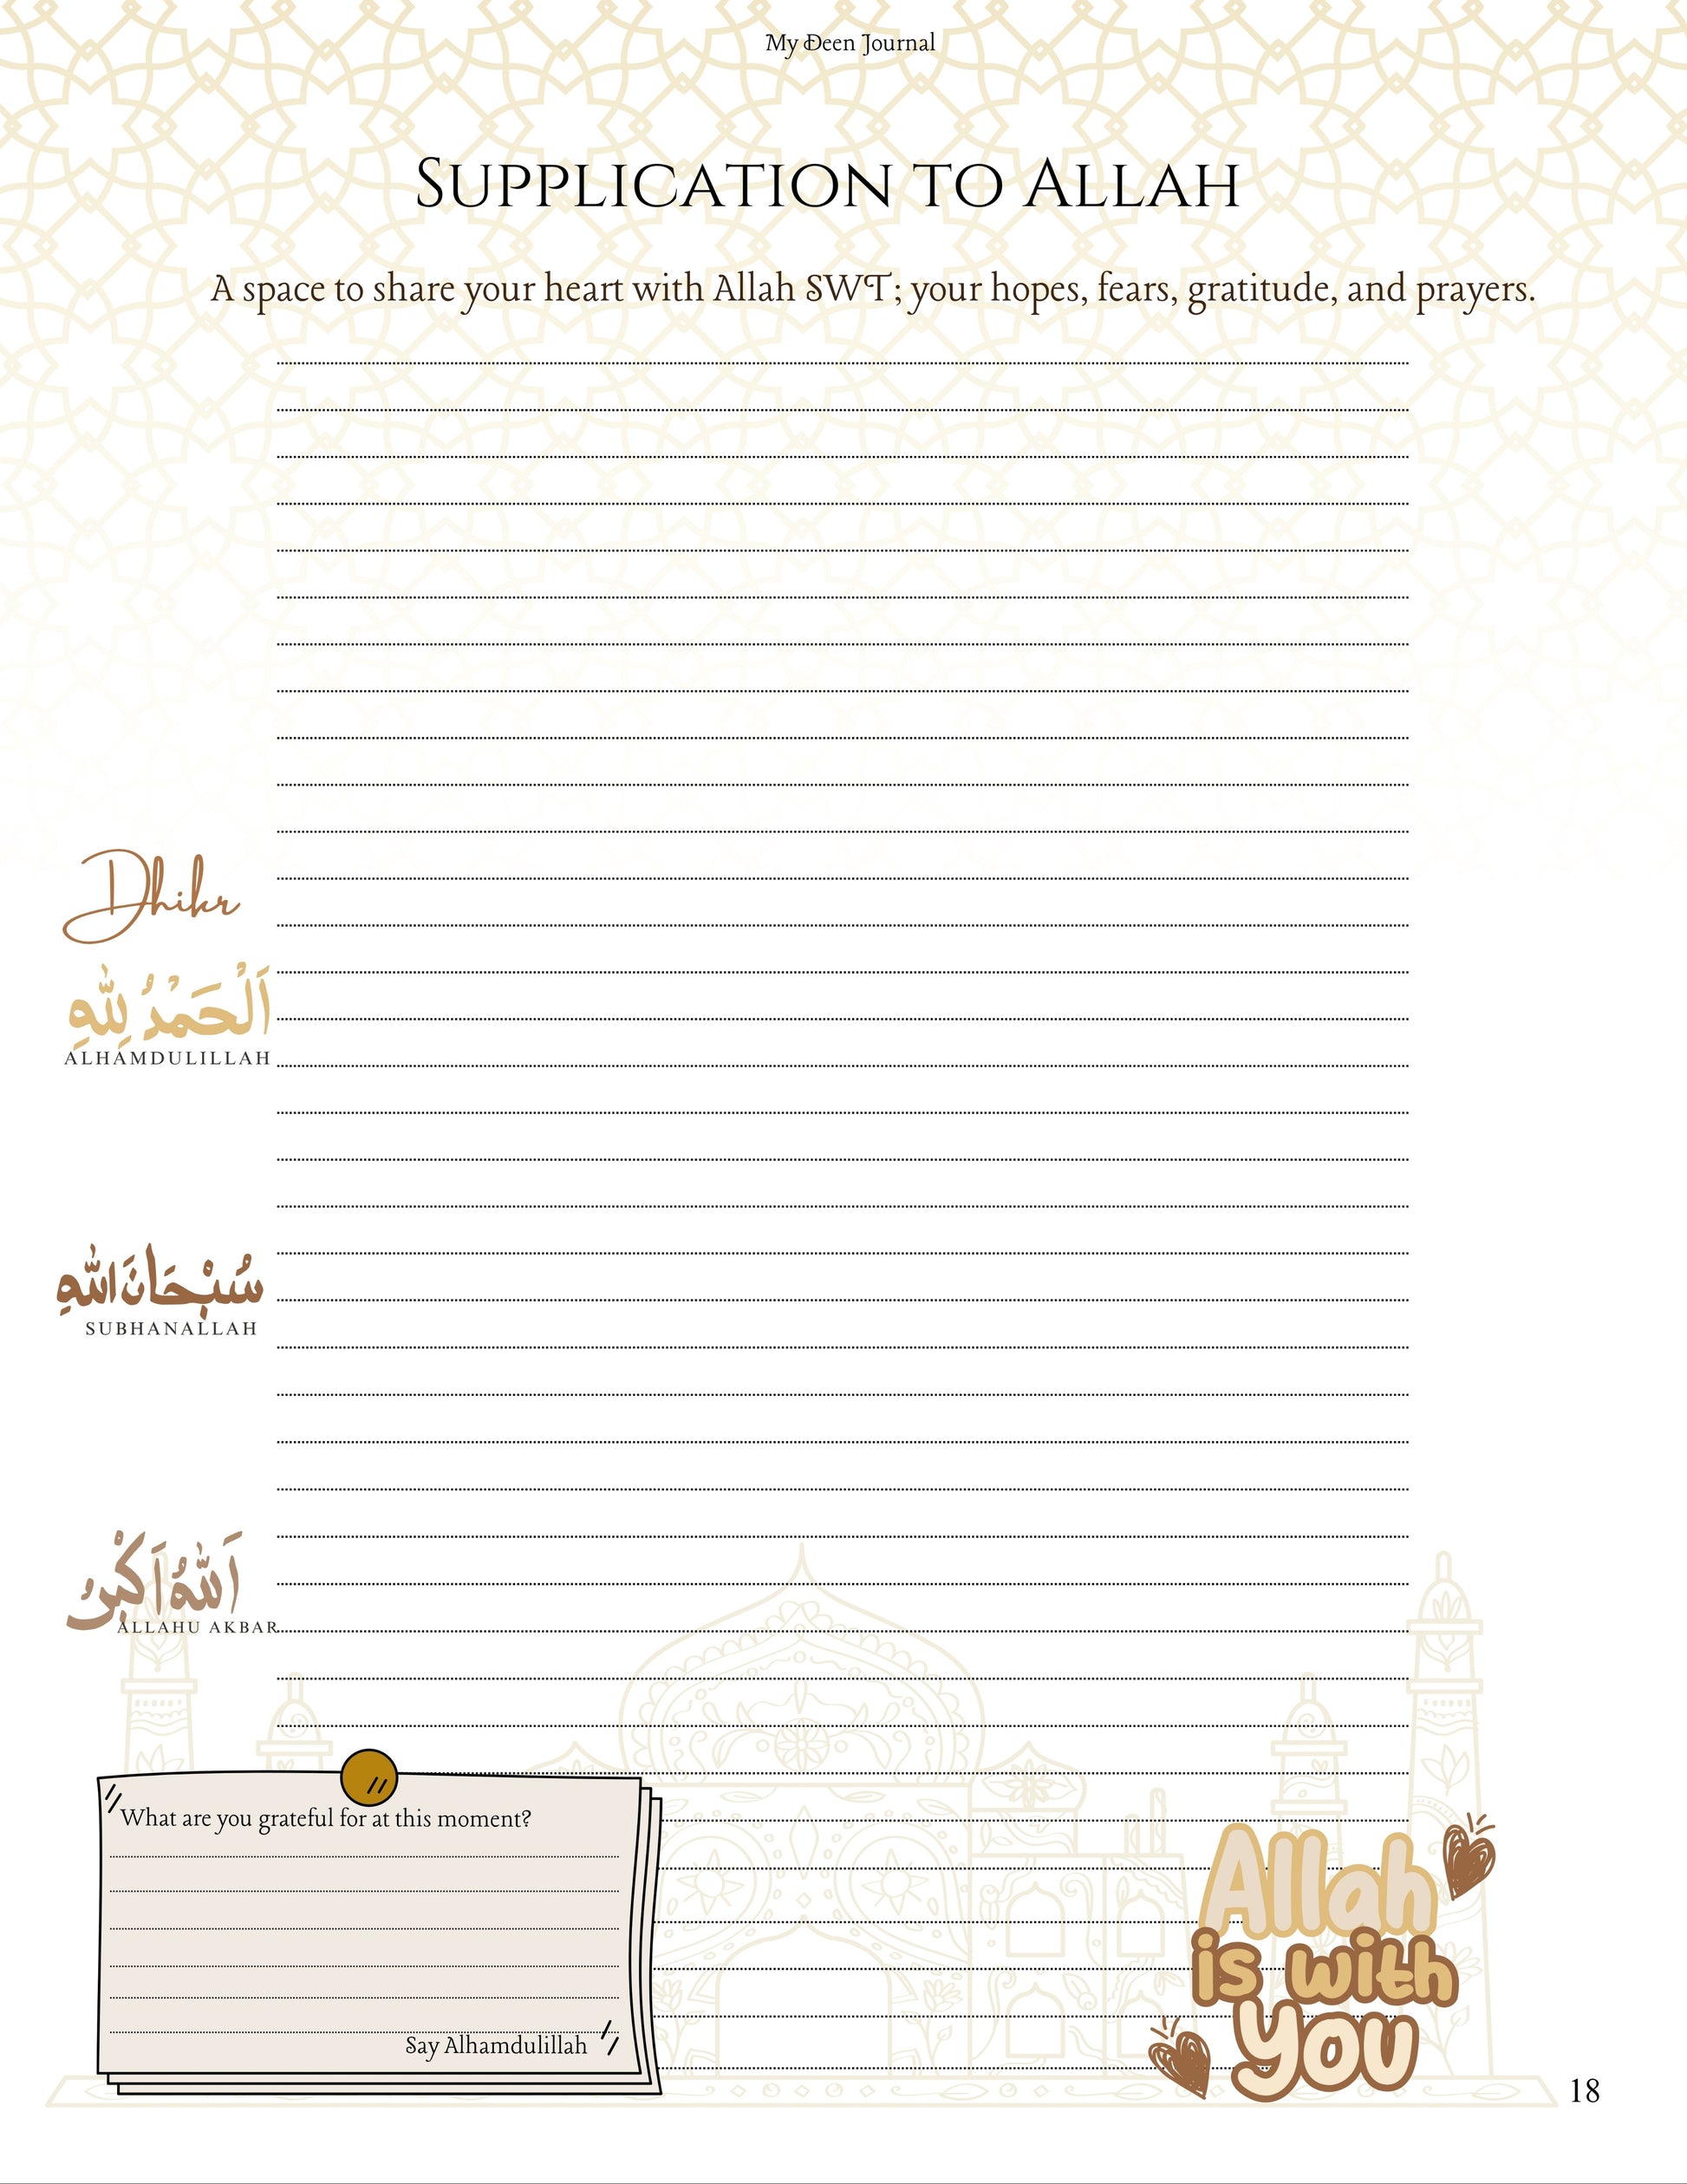 My Deen Journal
SUPPLICATION TO ALLAH
A space to share your heart with Allah SWT; your hopes, fears, gratitude, and prayers.
Dhikr
اَلْحَمْدُ لِلّٰهِ
ALHAMDULILLAH
سُبْحَانَ اللّٰهِ
SUBHANALLAH
اَللّٰهُ اَكْبَرُ
ALLAHU AKBAR
What are you grateful for at this moment?
Say Alhamdulillah
Allah
is with
You
18